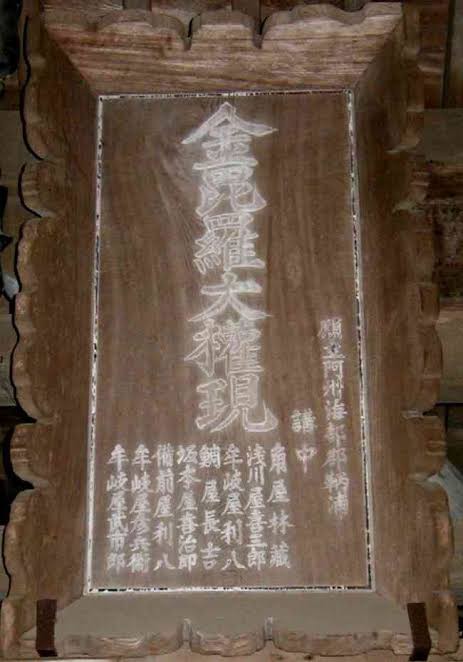 金毘羅大權現
願主阿州海部郡鞆浦
講中
角屋林藏
浅川屋喜三郎
牟岐屋利八
鯛屋長吉
坂本屋喜治郎
備前屋利八
牟岐屋彦兵衛
牟岐屋武市郎